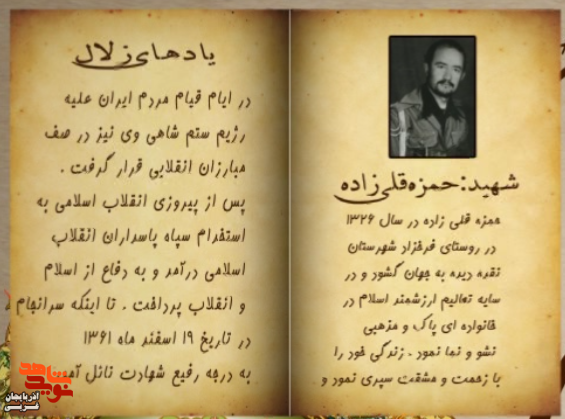 شهید: حمزه قلی زاده
حمزه قلی زاده در سال ۱۳۲۶
در روستای فرخزاد شهرستان
نقده دیده به جهان گشود و در
سایه تعالیم ارزشمند اسلام در
خانواده ای پاک و مذهبی
نشو و نما نمود . زندگی خود را
با زحمت و مشقت سپری نمود و
یادهای زلال
در ایام قیام مردم ایران علیه
رژیم ستم شاهی وی نیز در صف
مبارزان انقلابی قرار گرفت .
پس از پیروزی انقلاب اسلامی به
استخرام سپاه پاسداران انقلاب
اسلامی درآمد و به دفاع از اسلام
و انقلاب پرداخت . تا اینکه سرانجام
در تاریخ ۱۹ اسفند ماه ۱۳۶۱
به درجه رفیع شهادت نائل آمد
نوید شاهد
آذربایجان
غربی